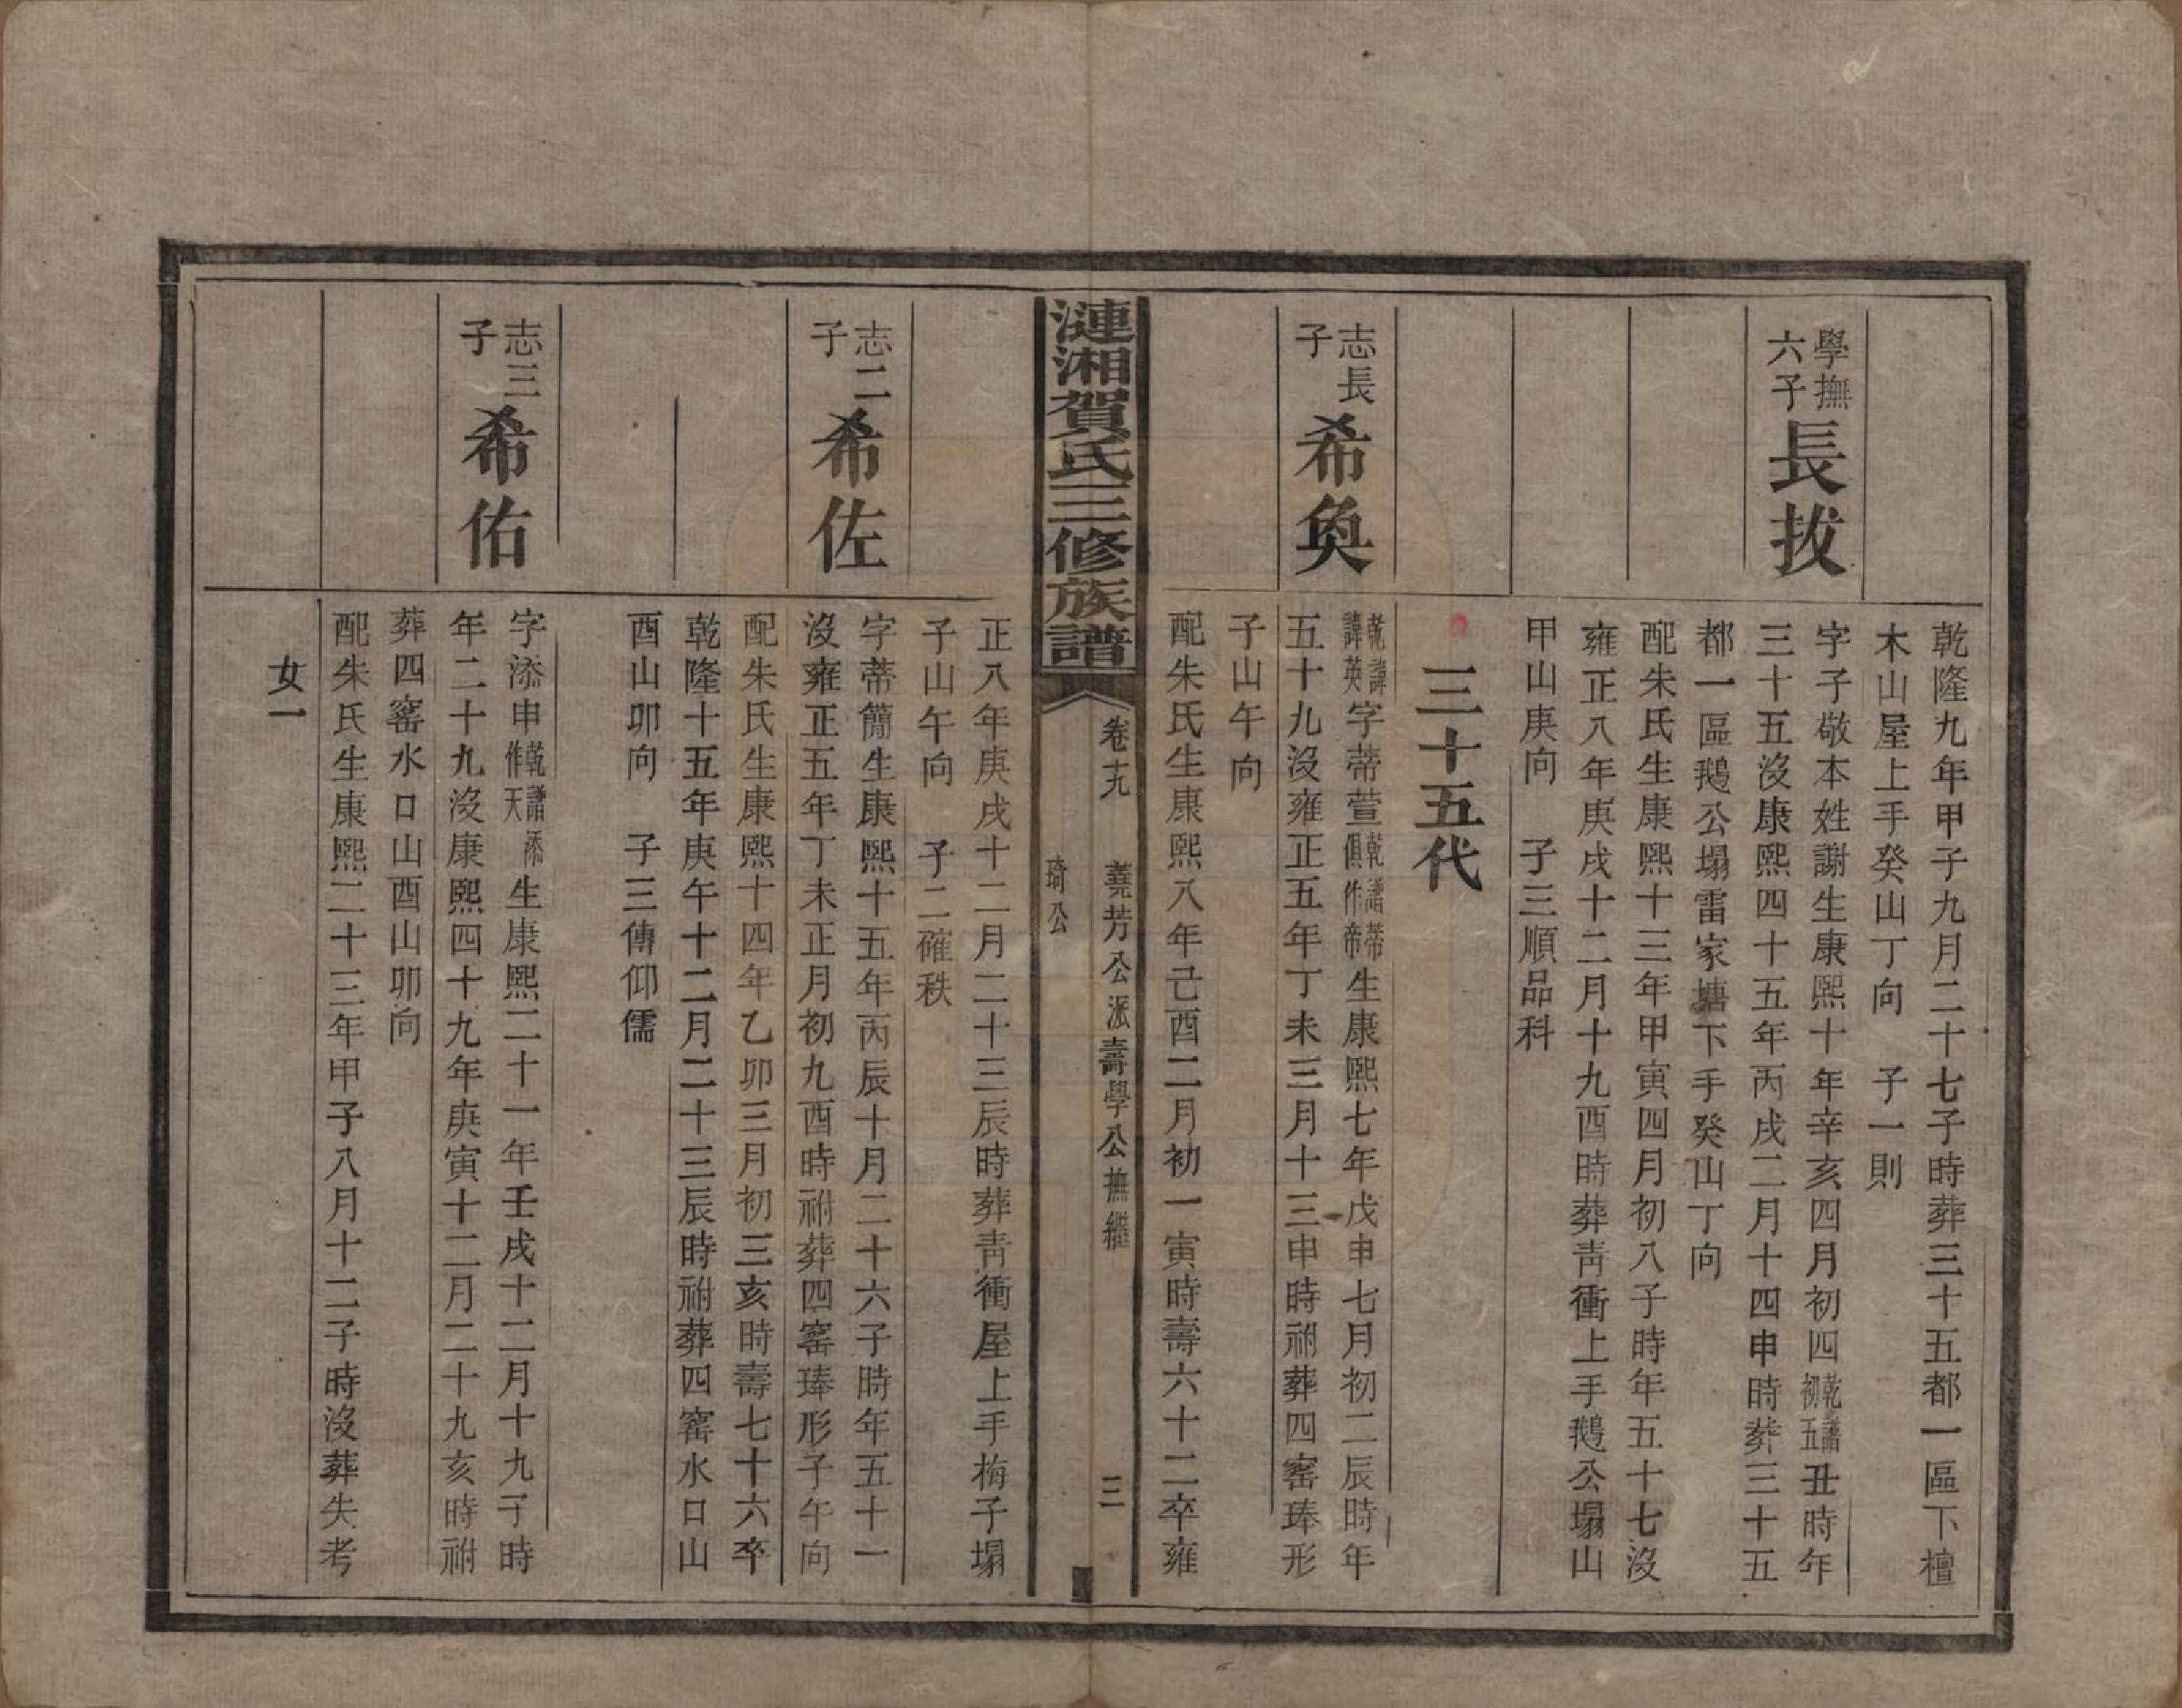 乾隆九年甲子九月二十七子時葬三十五都一區下檀
木山屋上手癸山丁向　子一則
學撫
六子
長拔
字子敬本姓謝生康熙十年辛亥四月初四乾譜初五丑時年
三十五沒康熙四十五年丙戌二月十四申時葬三十五
都一區鵝公塌雷家塘下手癸山丁向
配朱氏生康熙十三年甲寅四月初八子時年五十七沒
雍正八年庚戌十二月十九酉時葬青衝上手鵝公塌山
甲山庚向　子三順品科
三十五代
志長
子
希奐
乾譜諱英字蒂萱乾譜蒂俱作帝生康熙七年戊申七月初二辰時年
五十九沒雍正五年丁未三月十三申時祔葬四窰琫形
子山午向
配朱氏生康熙八年己酉二月初一寅時壽六十二卒雍
漣湘賀氏三修族譜
卷十九
蕘芳公派壽學公撫繼
琦公
三
正八年庚戌十二月二十三辰時葬青衝屋上手梅子塌
子山午向　子二確秩
志二
子
希佐
字蒂簡生康熙十五年丙辰十月二十六子時年五十一
沒雍正五年丁未正月初九酉時祔葬四窰琫形子午向
配朱氏生康熙十四年乙卯三月初三亥時壽七十六卒
乾隆十五年庚午十二月二十三辰時祔葬四窰水口山
酉山卯向　子三傳仰儒
志三
子
希佑
字添申乾譜添作天生康熙二十一年壬戌十二月十九子時
年二十九沒康熙四十九年庚寅十二月二十九亥時祔
葬四窰水口山酉山卯向
配朱氏生康熙二十三年甲子八月十二子時沒葬失考
女一